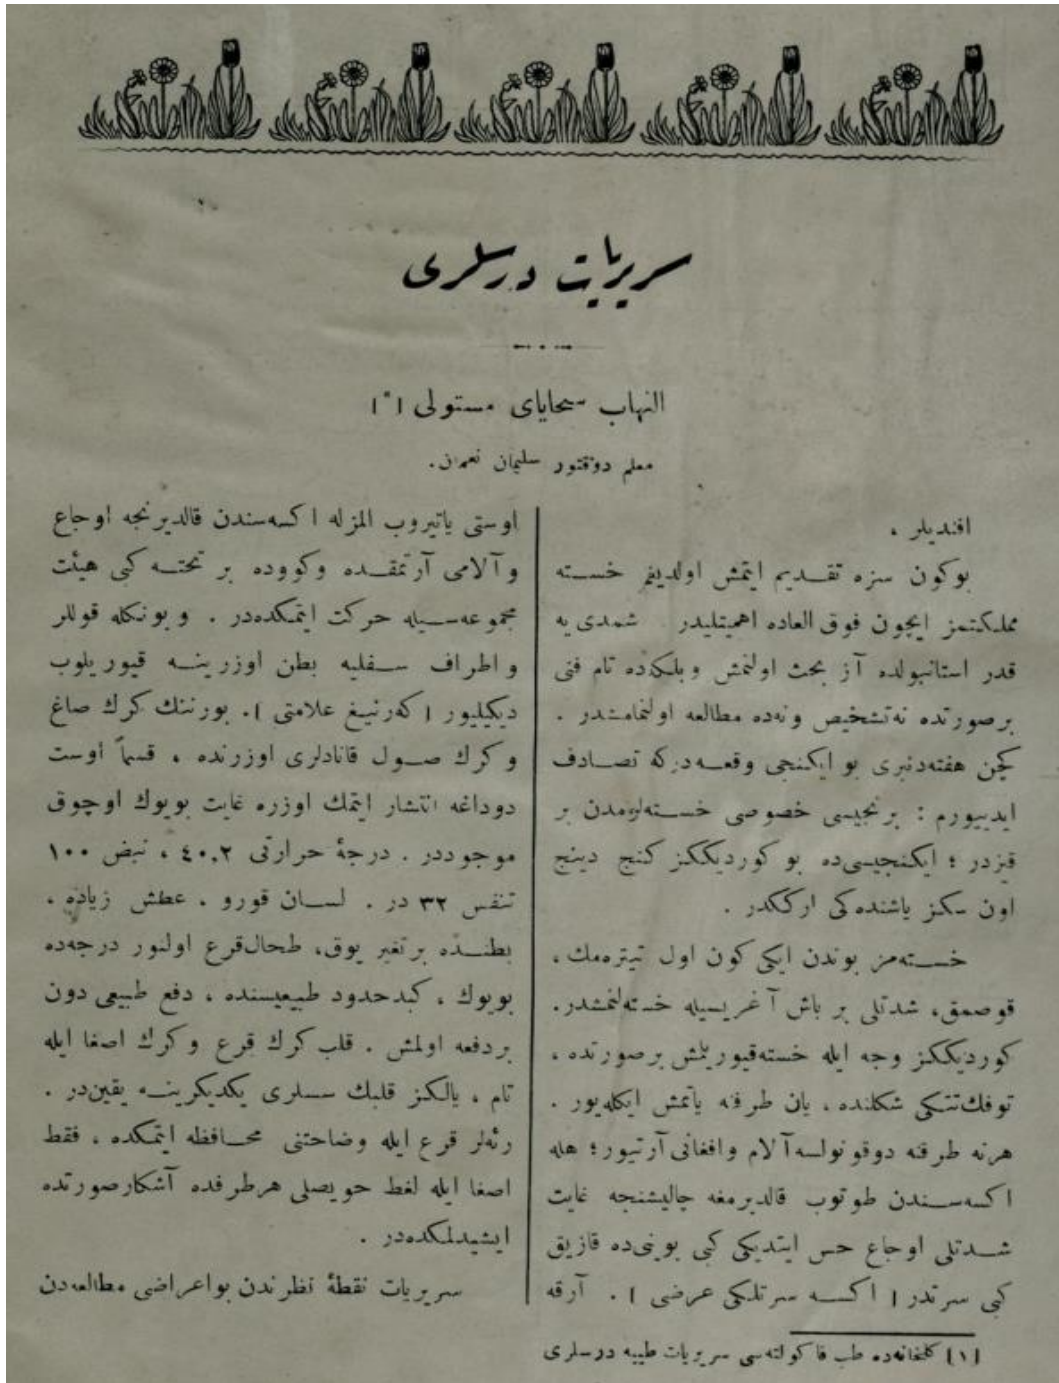 سريريات درسلرى
التهاب سحايای مستولی [*]
معلم دوقتور سليمان نعمان.
افنديلر ،
بوكون سزه تقـديم ايتمش اولديغم خسـته
مملكتمز ايچون فوق العاده اهميتليدر . شمدى يه
قدر استانبولده آز بحث اولنمش وبلكه‌ده تام فنى
برصورتده نه‌تشخيص ونه‌ده مطالعه اولنمامشدر .
كچن هفته‌دنبرى بو ايكنجى وقعـه‌دركه تصـادف
ايدييورم : برنجيسى خصوصى خسـته‌لرمدن بر
قيزدر ؛ ايكنجيسى‌ده بو كورديككز كنج دينج
اون سكز ياشنده‌كى ارككدر .
خسـته‌مز بوندن ايكى كون اول تيتره‌مك ،
قوصمق، شدتلى بر باش آغريسيله خسته‌لنمشدر.
كورديككز وجه ايله خسته‌قيوريلمش برصورتده ،
توفك‌تتكى شكلنده ، يان طرفنه ياتمش ايكله‌يور .
هرنه طرفنه دوقونولسه‌آلام وافغانى آرتيور؛ هله
اكسه‌سـندن طوتوب قالديرمغه چاليشنجه غايت
شـدتلى اوجاع حس ايتديكى كبى بوينى‌ده قازيق
كبى سرتدر [ اكسـه سرتلكى عرضى ] . آرقه
اوستى ياتيروب المزله اكسه‌سندن قالديرنجه اوجاع
وآلامى آرتمقـده وكووده بر تخته كبى هيئت
مجموعه‌سـيله حركت ايتمكده‌در . وبونكله قوللر
واطراف سـفليه بطن اوزرينـه قيوريلوب
ديكيليور [ كه‌رنيغ علامتى ]. بورننك كرك صاغ
وكرك صـول قانادلرى اوزرنده ، قسماً اوست
دوداغه انتشار ايتمك اوزره غايت بويوك اوچوق
موجوددر . درجهٔ حرارتى ٤٠,٢ ، نبض ١٠٠
تنفس ٣٢ در . لسـان قورو . عطش زياده .
بطنـده برتغير يوق، طحال‌قرع اولنور درجه‌ده
بويوك ، كبدحدود طبيعيسنده ، دفع طبيعى دون
بردفعه اولمش . قلب كرك قرع وكرك اصغا ايله
تام ، يالكز قلبك سسلرى يكديكرينـه يقين‌در .
رئه‌لر قرع ايله وضاحتنى محـافظه ايتمكده ، فقط
اصغا ايله لغط حويصلى هرطرفده آشكارصورتده
ايشيدلمكده‌در .
سريريات نقطهٔ نظرندن بواعراضى مطالعه‌دن
[١] كلخانه‌ده طب فاكولته‌سى سريريات طبيه درسلرى